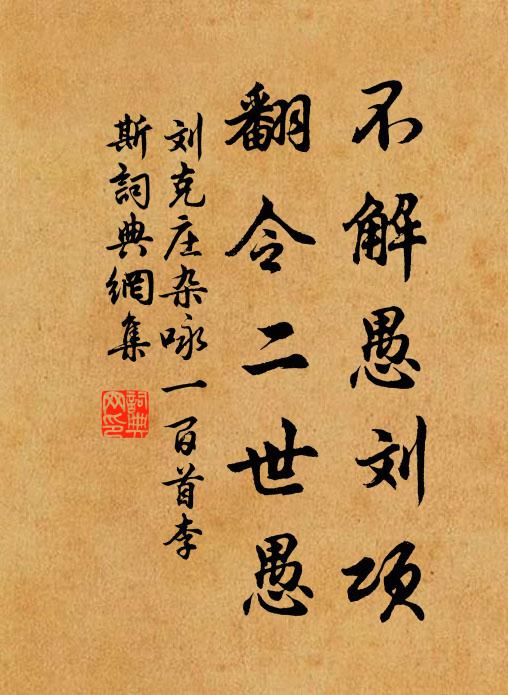 不解愚刘项
翻令二世愚
刘克庄杂咏一百首李
斯詞典網集
詞典
网印